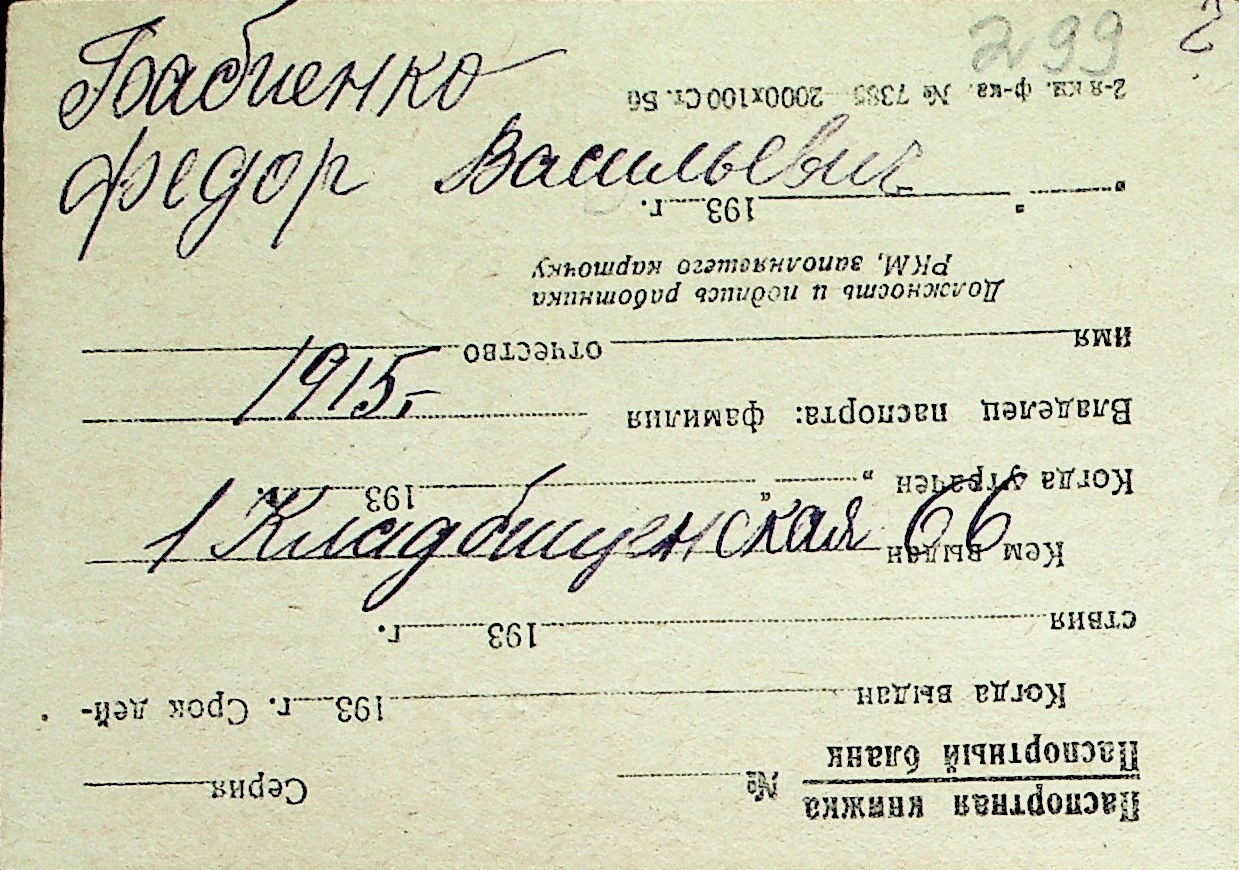 299
Бабиенко
Федор Васильевич
1915,-
1 Кладбищенская 66
Паспортная книжка
Паспортный бланк № Серия
Когда выдан 193 г. Срок дей-
ствия 193 г.
Кем выдан
Когда утрачен „ " 193 г.
Владелец паспорта: фамилия
имя отчество
Должность и подпись работника
РКМ, заполнявшего карточку
" " 193 г.
2-я кн. ф-ка. № 7385 2000х100 Ст. 56